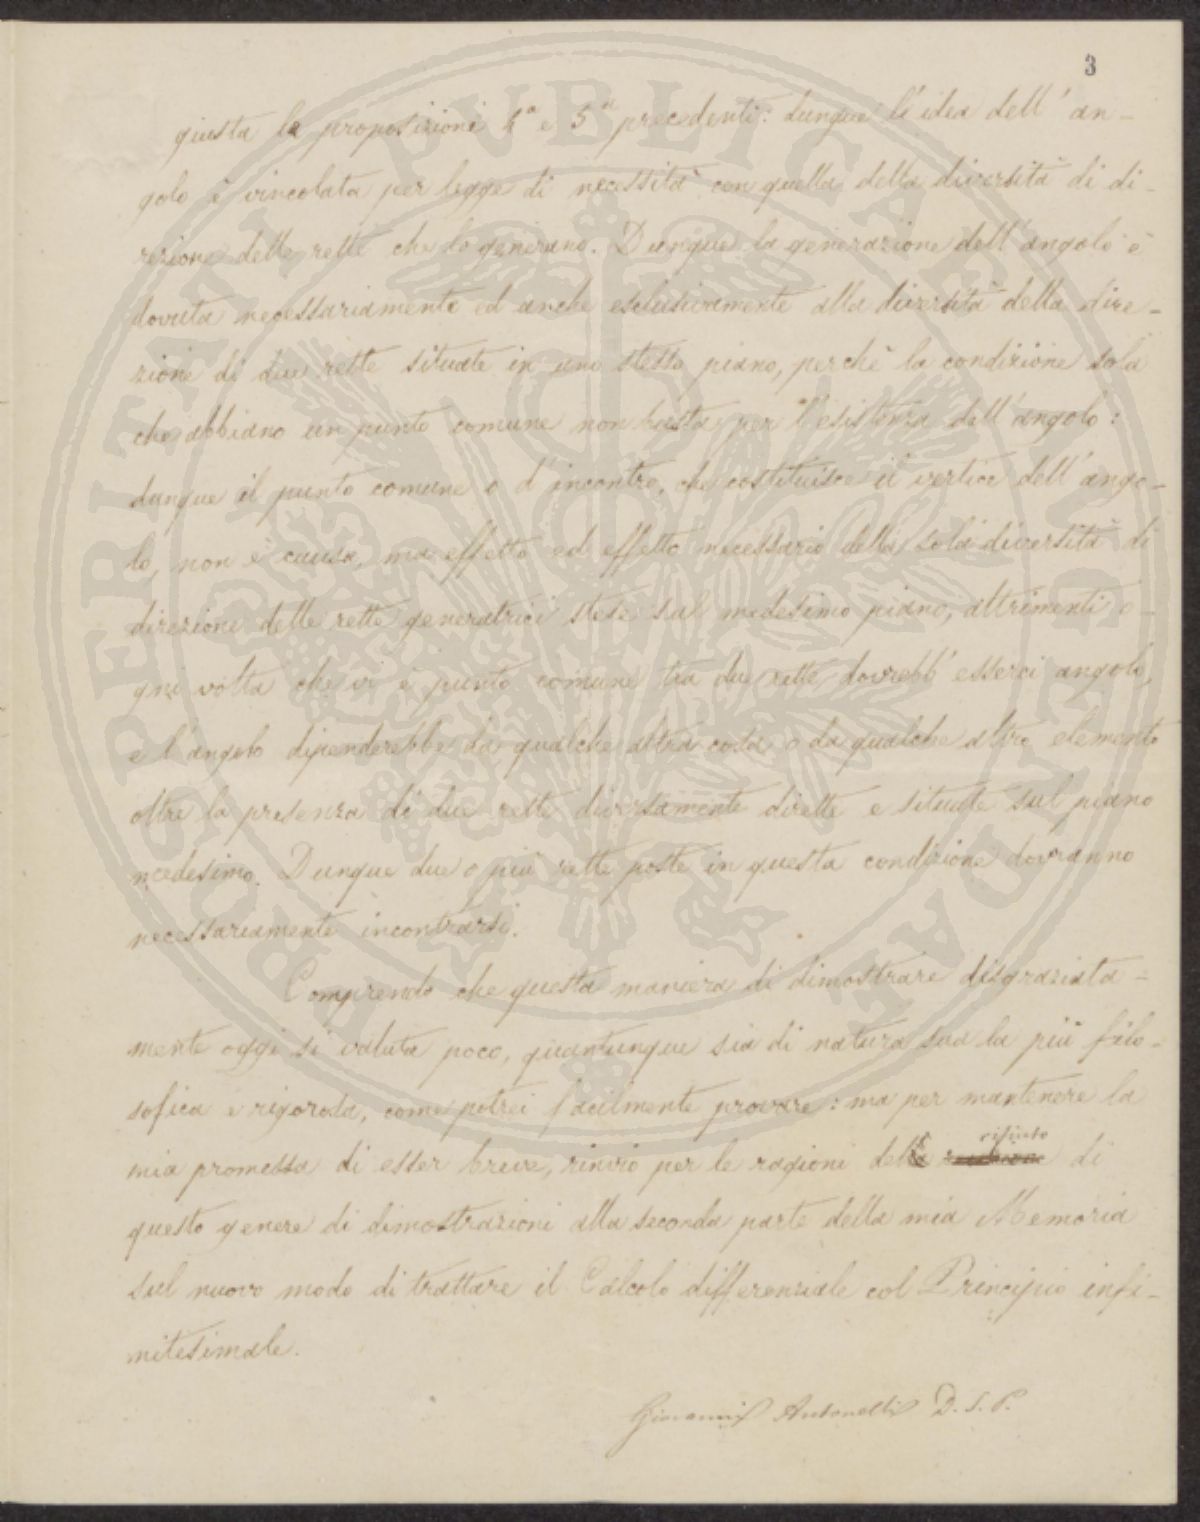 3
giusta le proposizioni 4ª e 5ª precedenti: dunque l'idea dell'an-
golo è vincolata per legge di necessità con quella della diversità di di-
rezione delle rette che lo generano. Dunque la generazione dell'angolo è
dovuta necessariamente ed anche esclusivamente alla diversità della dire-
zione di due rette situate in uno stesso piano, perchè la condizione sola
che abbiano un punto comune non basta per l'esistenza dell'angolo:
dunque il punto comune o d'incontro, che costituisce il vertice dell'ango-
lo, non è causa, ma effetto ed effetto necessario della sola diversità di
direzione delle rette generatrici stese sul medesimo piano, altrimenti o-
gni volta che vi è punto comune tra due rette dovrebb'esserci angolo,
e l'angolo dipenderebbe da qualche altra cosa o da qualche altro elemento
oltre la presenza di due rette diversamente dirette e situate sul piano
medesimo. Dunque due o più rette poste in questa condizione dovranno
necessariamente incontrarsi.
Comprendo che questa maniera di dimostrare disgraziata-
mente oggi si valuta poco, quantunque sia di natura sua la più filo-
sofica e rigorosa, come potrei facilmente provare: ma per mantenere la
mia promessa di esser breve, rinvio per le ragioni del rifiuto di
questo genere di dimostrazioni alla seconda parte della mia Memoria
sul nuovo modo di trattare il Calcolo differenziale col Principio infi-
nitesimale.
Giovanni Antonelli D. S. P.
PROSPERITATI PVBLICAE AVGENDAE